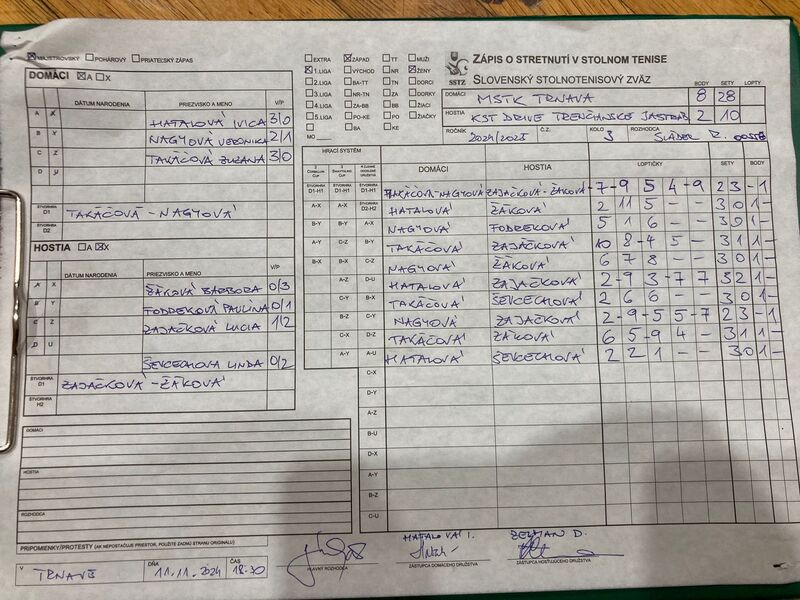 MAJSTROVSKÝ POHÁROVÝ PRIATEĽSKÝ ZÁPAS
DOMÁCI A X
DÁTUM NARODENIA PRIEZVISKO A MENO V/P
A X HATALOVÁ IVICA 3/0
B Y NAGYOVÁ VERONIKA 2/1
C Z TAKÁČOVÁ ZUZANA 3/0
D U
ŠTVORHRA D1 TAKÁČOVÁ - NAGYOVÁ
ŠTVORHRA D2
HOSTIA A X
DÁTUM NARODENIA PRIEZVISKO A MENO V/P
A X ŽÁKOVÁ BARBORA 0/3
B Y PAULÍNA 0/1
C Z ZAJAČKOVÁ LUCIA 1/2
D U
LINDA 0/2
ŠTVORHRA D1 ZAJAČKOVÁ - ŽÁKOVÁ
ŠTVORHRA H2
DOMÁCI
HOSTIA
ROZHODCA
PRIPOMIENKY/PROTESTY (AK NEPOSTAČUJE PRIESTOR, POUŽITE ZADNÚ STRANU ORIGINÁLU)
V TRNAVE DŇA 11.11.2024 ČAS
EXTRA ZÁPAD TT MUŽI
1.LIGA VÝCHOD NR ŽENY
2.LIGA BA-TT TN DORCI
3.LIGA NR-TN ZA DORKY
4.LIGA ZA-BB BB ŽIACI
5.LIGA PO-KE PO ŽIAČKY
MO BA KE
SSTZ
ZÁPIS O STRETNUTÍ V STOLNOM TENISE
SLOVENSKÝ STOLNOTENISOVÝ ZVÄZ
BODY SETY LOPTY
DOMÁCI MSTK TRNAVA 8 28
HOSTIA KST DRIVE TRENČIANSKE JASTRAB 2 10
ROČNÍK 2024/2025 Č.Z. KOLO 3 ROZHODCA
HRACÍ SYSTÉM DOMÁCI HOSTIA LOPTIČKY SETY BODY
D1-H1 D1-H1 D1-H1 TAKÁČOVÁ-NAGYOVÁ ZAJAČKOVÁ-ŽÁKOVÁ -7 -9 5 4 -9 2 3 - 1
A-X A-X D2-H2 HATALOVÁ ŽÁKOVÁ 2 11 5 - - 3 0 1 -
B-Y B-Y A-X NAGYOVÁ 5 1 6 - - 3 0 1 -
A-Y C-Z B-Y TAKÁČOVÁ ZAJAČKOVÁ 10 8 -4 5 - 3 1 1 -
B-X B-X C-Z NAGYOVÁ ŽÁKOVÁ 6 7 8 - - 3 0 1 -
A-Z D-U HATALOVÁ ZAJAČKOVÁ 2 -9 3 -7 7 3 2 1 -
C-Y B-X TAKÁČOVÁ 2 6 6 - - 3 0 1 -
B-Z C-Y NAGYOVÁ ZAJAČKOVÁ 2 -9 -5 5 -7 2 3 - 1
C-X D-Z TAKÁČOVÁ ŽÁKOVÁ 6 5 -9 4 - 3 1 1 -
A-Y A-U HATALOVÁ 2 2 1 - - 3 0 1 -
C-X
D-Y
A-Z
B-U
D-X
A-Y
B-Z
C-U
HATALOVÁ I. ZEMAN D.
HLAVNÝ ROZHODCA ZÁSTUPCA DOMÁCEHO DRUŽSTVA ZÁSTUPCA HOSŤUJÚCEHO DRUŽSTVA